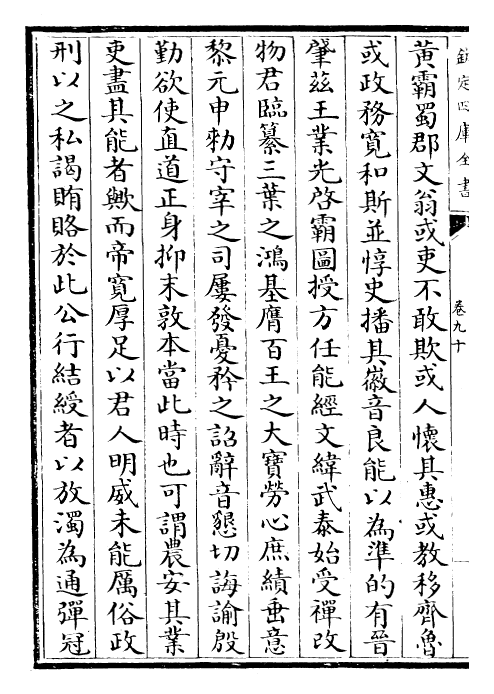 欽定四庫全書
卷九十
黃霸蜀郡文翁或吏不敢欺或人懷其惠或教移齊魯
或政務寬和斯並惇史播其徽音良能以為準的有晉
肇茲王業光啓霸圖授方任能經文緯武泰始受禪改
物君臨纂三葉之鴻基膺百王之大寶勞心庶績垂意
黎元申勅守宰之司屢發憂矜之詔辭音懇切誨諭殷
勤欲使直道正身抑末敦本當此時也可謂農安其業
吏盡其能者歟而帝寬厚足以君人明威未能厲俗政
刑以之私謁賄賂於此公行結綬者以放濁為通彈冠